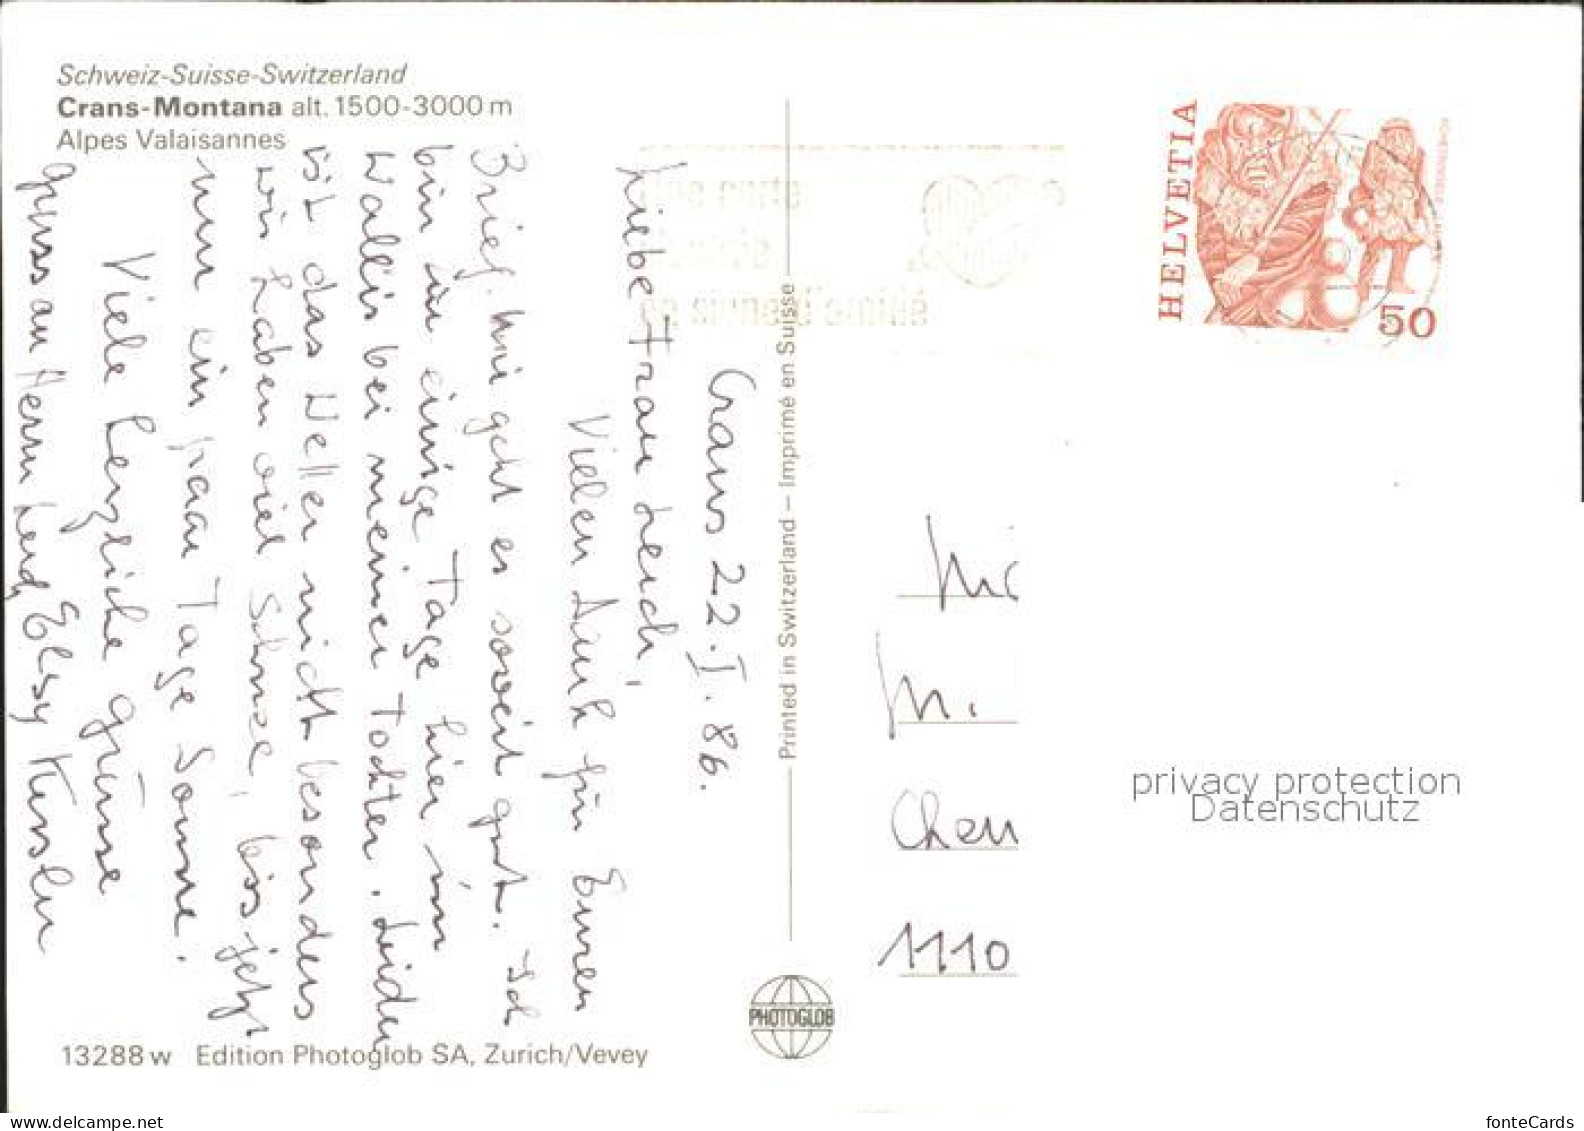 Schweiz-Suisse-Switzerland
Crans-Montana alt. 1500-3000 m
Alpes Valaisannes
Crans 22.I.86.
Liebe Frau Lerch,
Vielen Dank für Euren
Brief. Mir geht es soweit gut. Ich
bin für einige Tage hier im
Wallis bei meiner Tochter. Leider
ist das Wetter nicht besonders
wir haben viel Schnee, bis jetzt
nur ein paar Tage Sonne.
Viele herzliche Grüsse
Gruss an Herrn Lerch, Elsy Kessler
13288 w Edition Photoglob SA, Zurich/Vevey
Printed in Switzerland – Imprimé en Suisse
PHOTOGLOB
HELVETIA
50
M.
1110
privacy protection
Datenschutz
https://www.delcampe.net
fonteCards